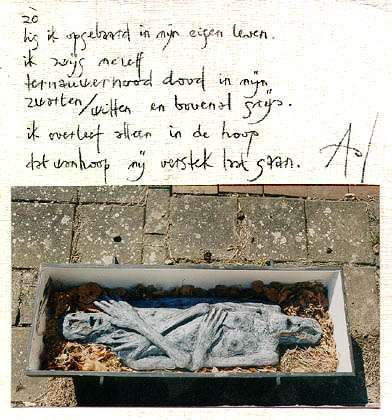 zò
lig ik opgebaard in mijn eigen leven.
ik zwijg mezelf
ternauwernood dood in mijn
zwarten/witten en bovenal grijs.
ik overleef alleen in de hoop
dat wanhoop mij verstek laat gaan.